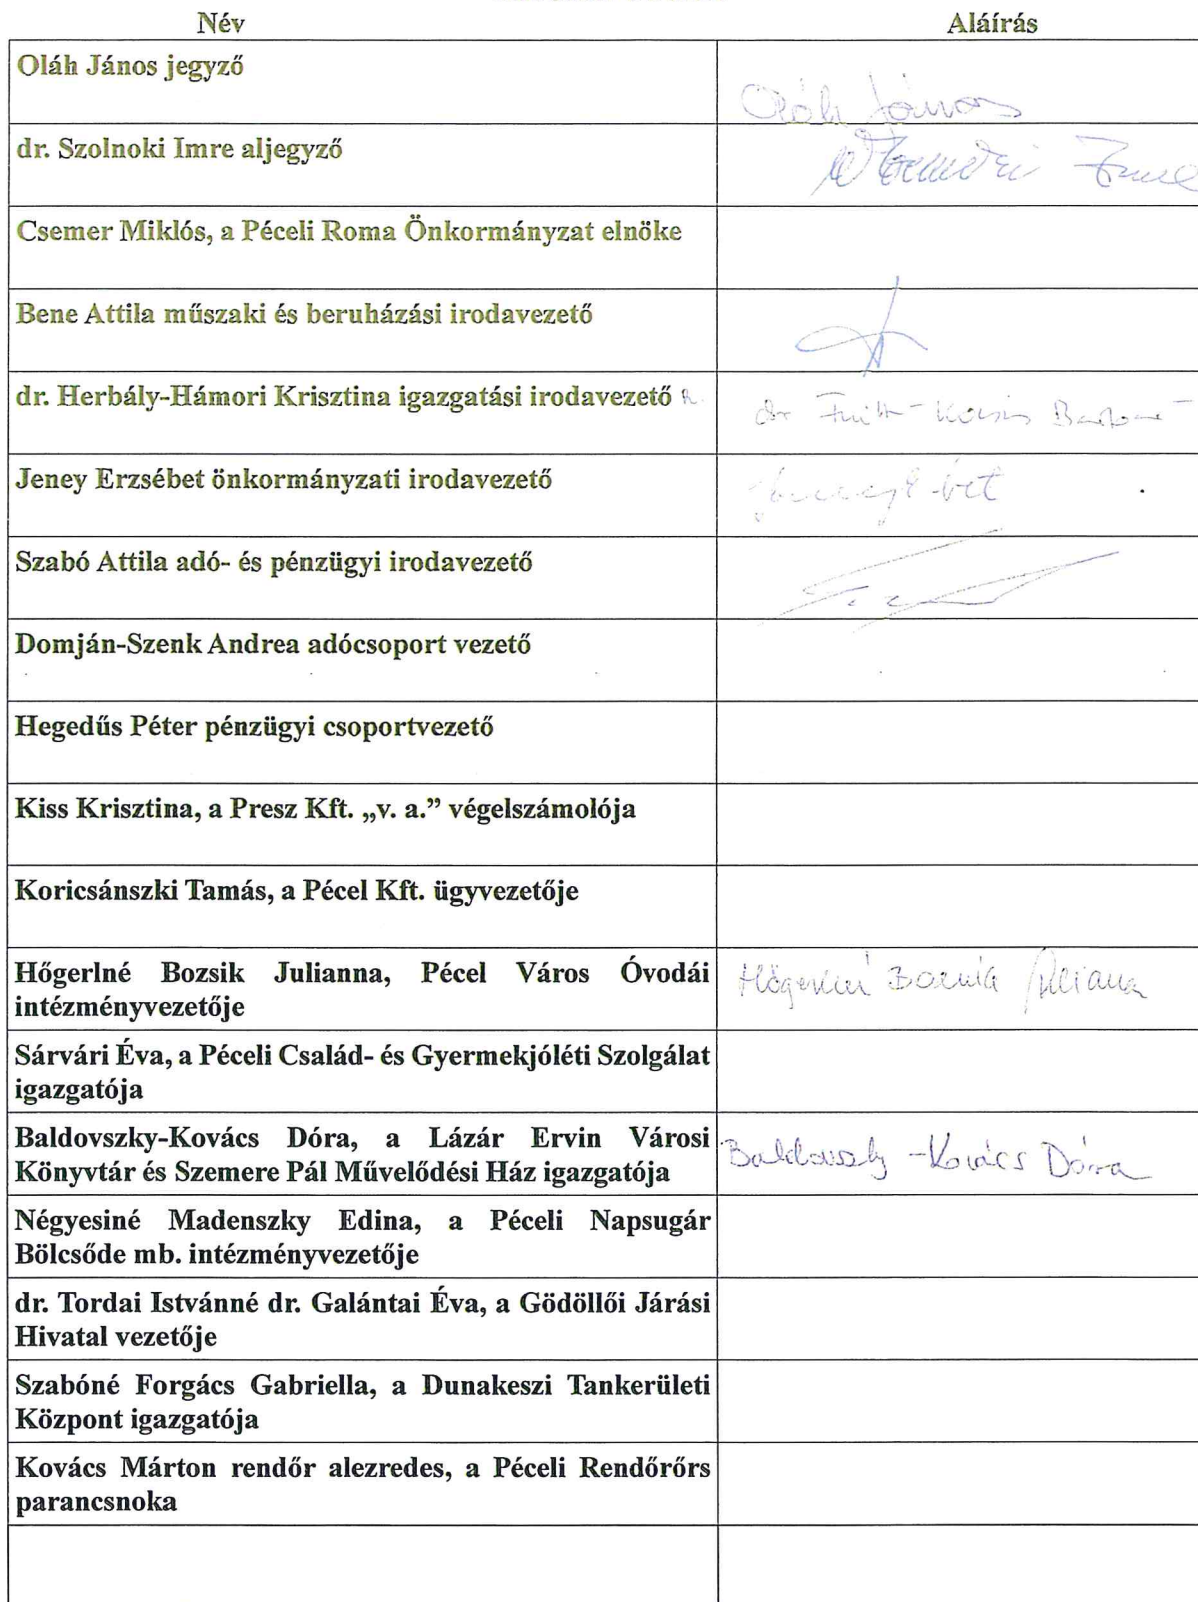 Név Aláírás
Oláh János jegyző
Oláh János
dr. Szolnoki Imre aljegyző
Imre
Csemer Miklós, a Péceli Roma Önkormányzat elnöke
Bene Attila műszaki és beruházási irodavezető
dr. Herbály-Hámori Krisztina igazgatási irodavezető
dr
Jeney Erzsébet önkormányzati irodavezető
Szabó Attila adó- és pénzügyi irodavezető
Domján-Szenk Andrea adócsoport vezető
Hegedűs Péter pénzügyi csoportvezető
Kiss Krisztina, a Presz Kft. „v. a.” végelszámolója
Koricsánszki Tamás, a Pécel Kft. ügyvezetője
Hőgerlné Bozsik Julianna, Pécel Város Óvodái
intézményvezetője
Hőgerlné Bozsik Julianna
Sárvári Éva, a Péceli Család- és Gyermekjóléti Szolgálat
igazgatója
Baldovszky-Kovács Dóra, a Lázár Ervin Városi
Könyvtár és Szemere Pál Művelődési Ház igazgatója
Baldovszky-Kovács Dóra
Négyesiné Madenszky Edina, a Péceli Napsugár
Bölcsőde mb. intézményvezetője
dr. Tordai Istvánné dr. Galántai Éva, a Gödöllői Járási
Hivatal vezetője
Szabóné Forgács Gabriella, a Dunakeszi Tankerületi
Központ igazgatója
Kovács Márton rendőr alezredes, a Péceli Rendőrőrs
parancsnoka